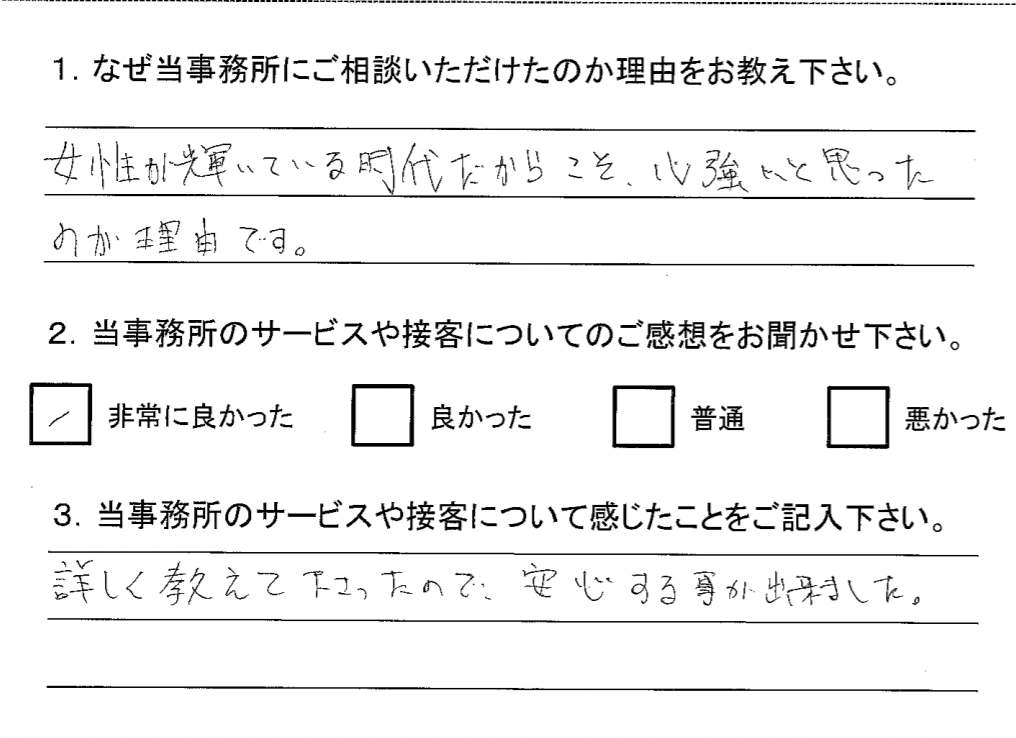 1. なぜ当事務所にご相談いただけたのか理由をお教え下さい。
女性が輝いている時代だからこそ、心強いと思った
のが理由です。
2. 当事務所のサービスや接客についてのご感想をお聞かせ下さい。
非常に良かった 良かった 普通 悪かった
3. 当事務所のサービスや接客について感じたことをご記入下さい。
詳しく教えて下さったので、安心する事が出来ました。